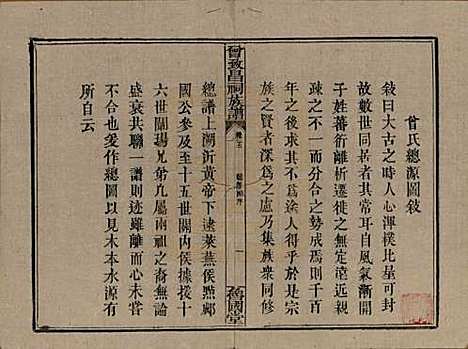 曾氏總源圖敘
敘曰大古之時人心渾樸比屋可封
故數世同居者其常耳自風氣漸開
子姓蕃衍離析遷徙之無定遠近親
疎之不一而分合之勢成焉則千百
年之後其不為途人得乎於是
族之賢者深為之慮乃集族衆同修
曾致昌祠族譜
卷五
敦國堂
總譜上溯沂黃帝下逮萊蕪侯㸃鄅
國公貞至十五世關內侯據援十
六世關瑒兄弟凡屬兩祖之裔無論
盛衰共聯一譜則迹雖離而心未嘗
不合也爰作總圖以見木本水源有
所自云